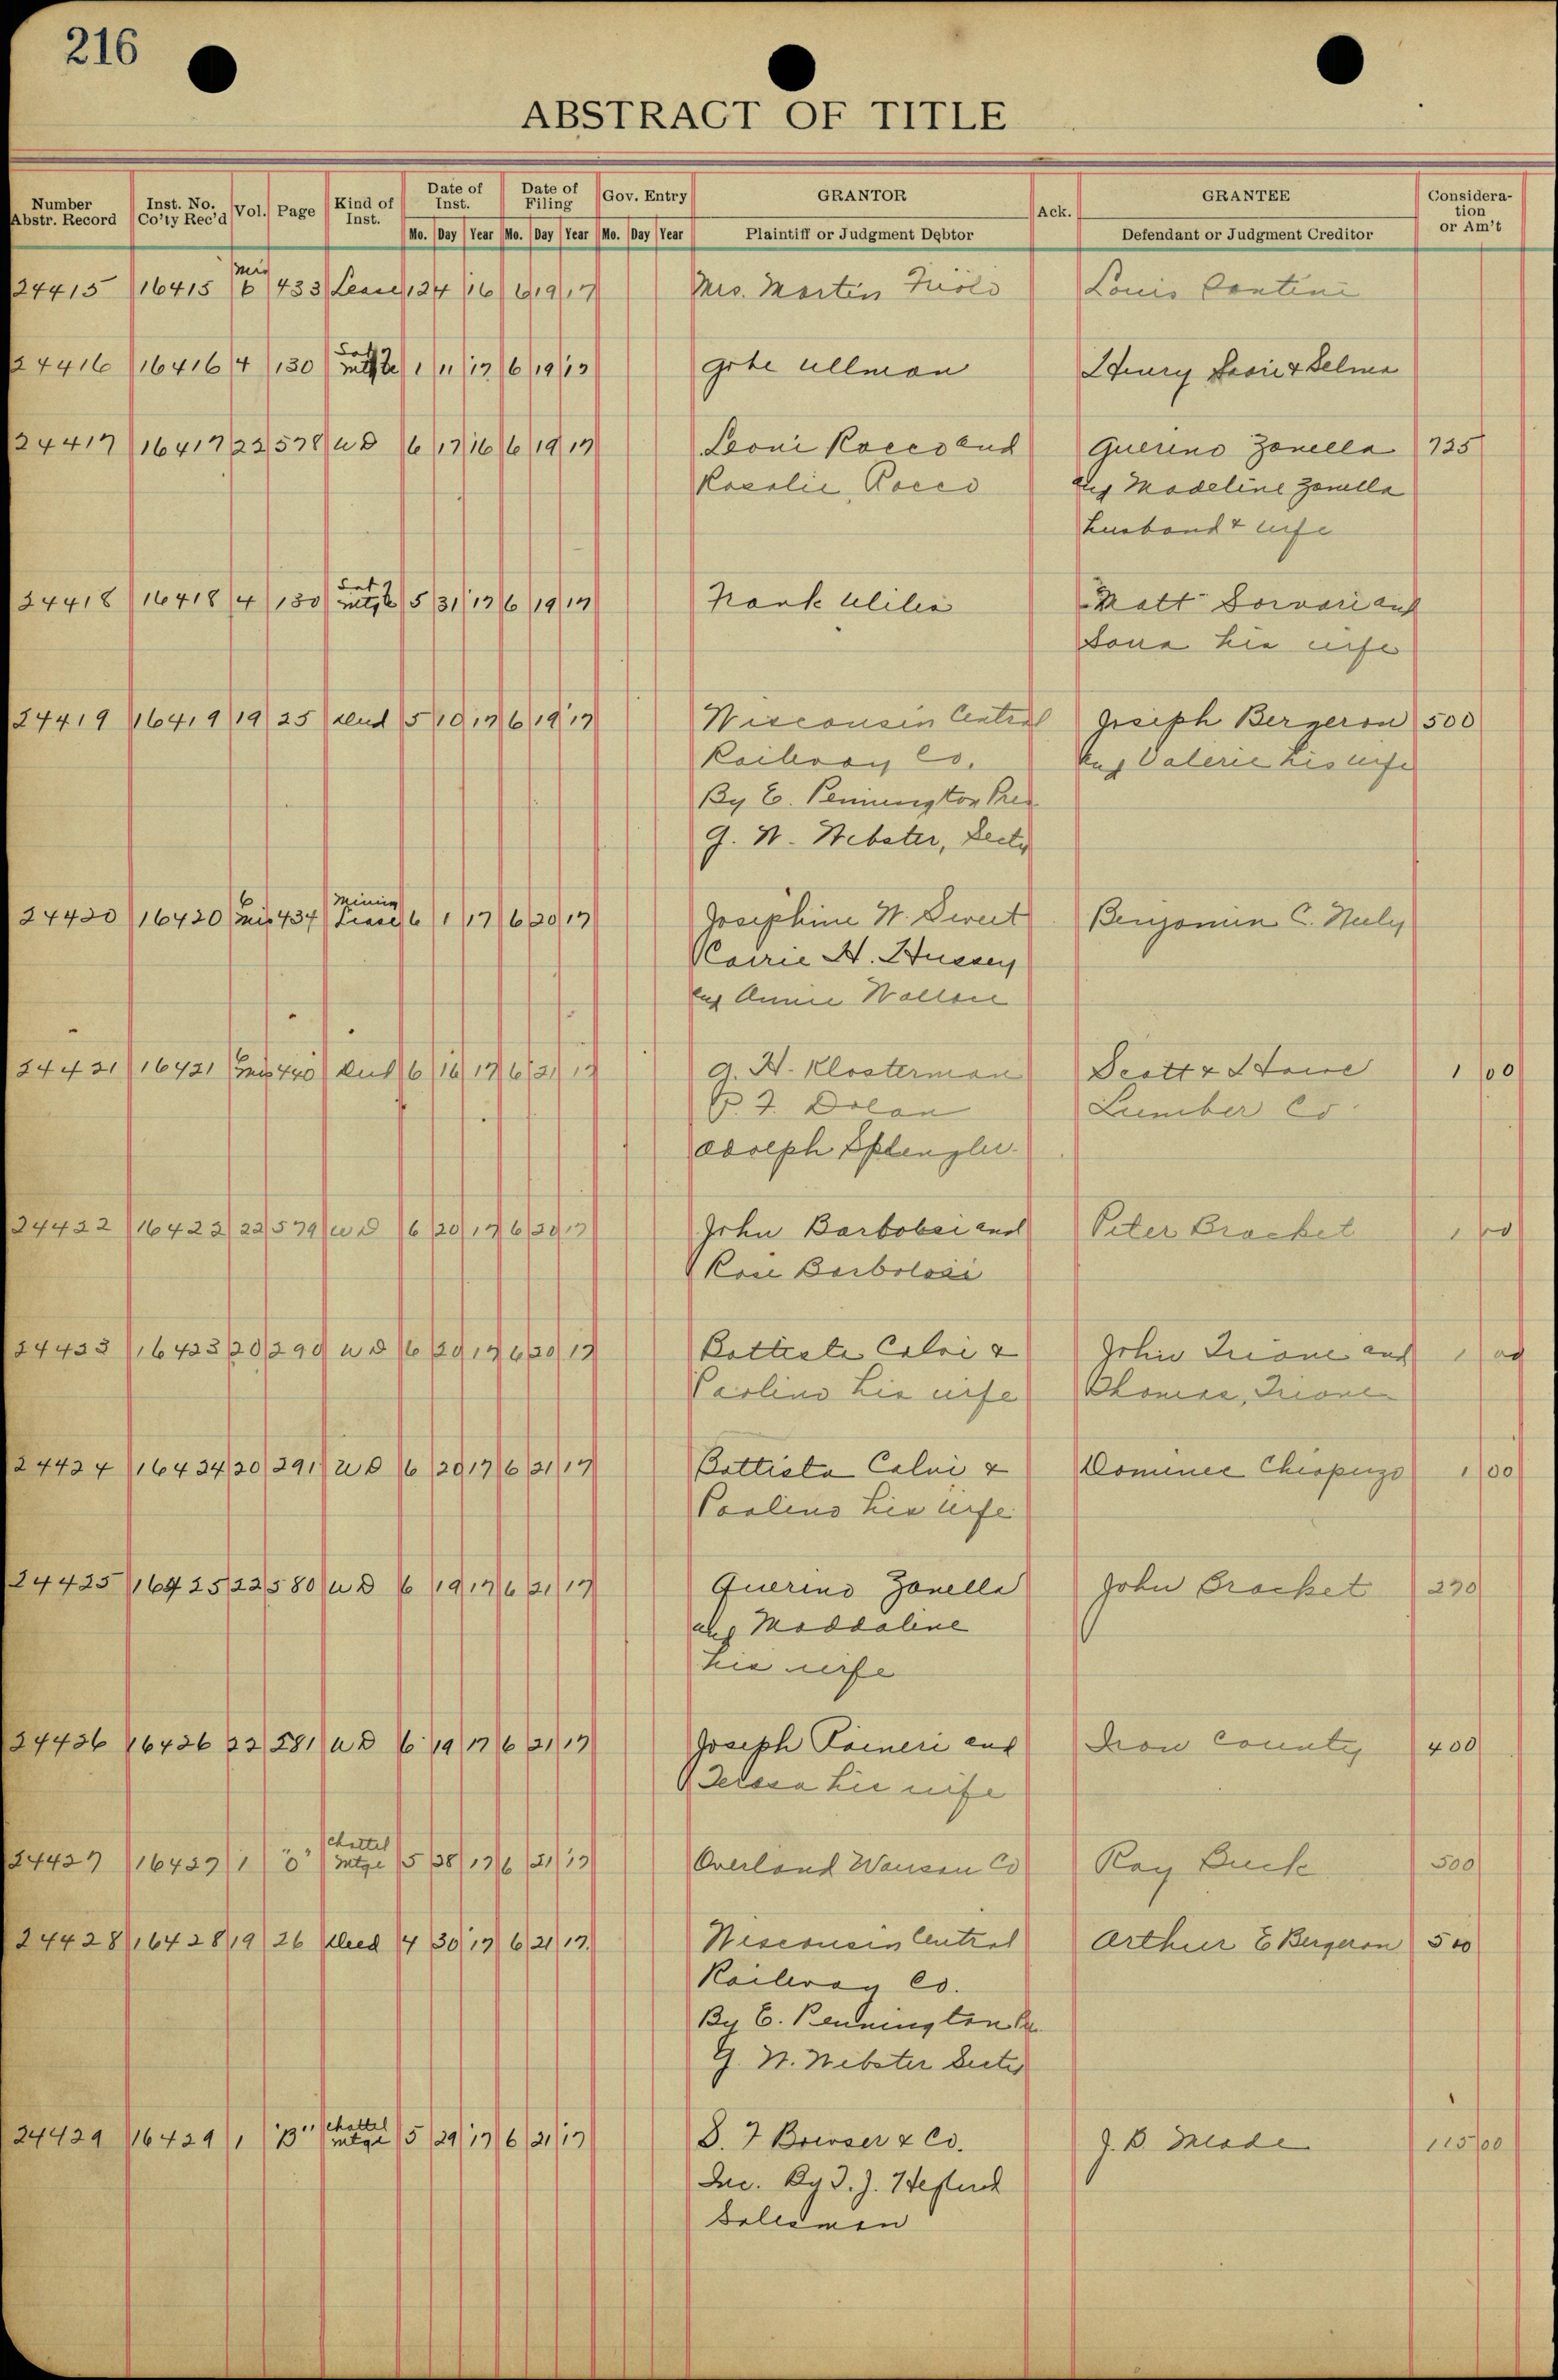 216
ABSTRACT OF TITLE
Number Abstr. Record Inst. No. Co'ty Rec'd Vol. Page Kind of Inst. Date of Inst. Date of Filing Gov. Entry GRANTOR Ack. GRANTEE Consideration or Am't
Mo. Day Year Mo. Day Year Mo. Day Year Plaintiff or Judgment Debtor Defendant or Judgment Creditor
24415 16415 Mis 6 433 Lease 1 24 16 6 19 17 Mrs. Martin Louis
24416 16416 4 130 Sat Mtge 1 11 17 6 19 17 Ullman Henry & Selma
24417 16417 22 578 W D 6 17 16 6 19 17 Leoni Rocco and Guerino Zanella 725
Rosalie, Rocco and Madeline Zanella
husband & wife
24418 16418 4 130 Sat Mtge 5 31 17 6 19 17 Frank Matt and
his wife
24419 16419 19 25 Deed 5 10 17 6 19 17 Wisconsin Central Joseph Bergeron 500
Railway Co. and Valerie his wife
By E. Pennington Pres
G. W. Webster, Secty
24420 16420 6 Mis 434 Mining Lease 6 1 17 6 20 17 Josephine W. Sweet Benjamin C. Neely
Carrie H. Hussey
and Annie
24421 16421 6 Mis 440 Deed 6 16 17 6 21 17 A. H. Klosterman Scott & Howe 1 00
P. F. Dolan Lumber Co.
Adolph
24422 16422 22 579 W D 6 20 17 6 20 17 John and Peter Bracket 1 00
Rose
24423 16423 20 290 W D 6 20 17 6 20 17 Battista Calvi & John Trione and 1 00
Paolino his wife Thomas, Trione
24424 16424 20 291 W D 6 20 17 6 21 17 Battista Calvi & 1 00
Paolino his wife
24425 16425 22 580 W D 6 19 17 6 21 17 Guerino Zanella John Bracket 270
and Maddaline
his wife
24426 16426 22 581 W D 6 19 17 6 21 17 Joseph Raineri and Iron County 400
Teresa his wife
24427 16427 1 "O" Chattel Mtge 5 28 17 6 21 17 Overland Wausau Co Ray Buck 500
24428 16428 19 26 Deed 4 30 17 6 21 17 Wisconsin Central Arthur E Bergeron 500
Railway Co.
By E. Pennington
G. W. Webster Secty
24429 16429 1 "B" Chattel Mtge 5 29 17 6 21 17 S. F Bowser & Co. J. B. Meade 115 00
Inc. By
Salesman